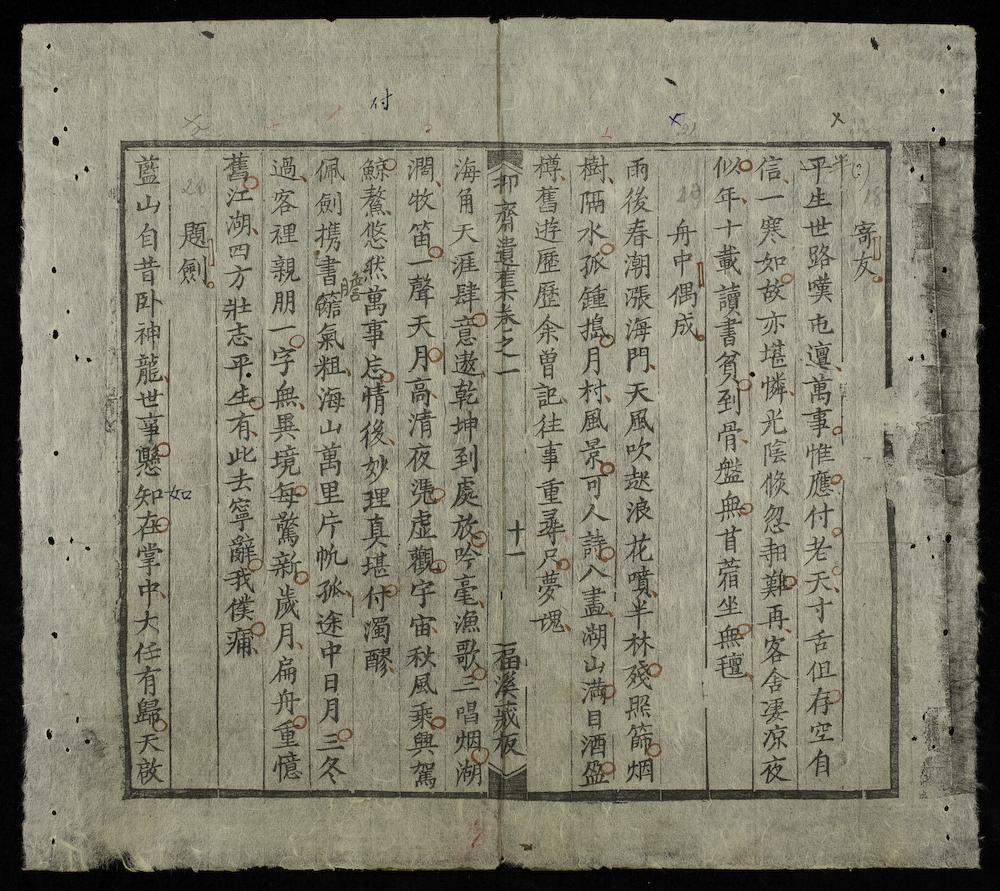 寄友
平生世路嘆屯邅萬事惟應付老天寸舌但存空自
信一寒如故亦堪憐光陰倐忽難再客舍凄凉夜
似年十載讀書貧到骨盤無苜蓿坐無氊
舟中偶成
雨後春潮漲海門天風吹起浪花噴半林殘照篩烟
樹隔水孤鍾搗月村風景可人詩入畫湖山滿目酒盈
樽舊遊歷歷余曾記往事重尋只夢魂
抑齋遺集卷之一 十一 福溪藏板
海角天涯肆意遨乾坤到處放吟毫漁歌三唱烟湖
濶牧笛一聲天月高清夜凴虛觀宇宙秋風乘興駕
鯨鰲悠然萬事忘情後妙理真堪付濁醪
佩劍携書氣粗海山萬里片帆孤途中日月三冬
過客裡親朋一字無異境每驚新歲月扁舟重憶
舊江湖四方壯志平生有此去寧辭我僕痡
題劍
藍山自昔卧神龍世事懸知在掌中大任有歸天啟
付
膽
如
半